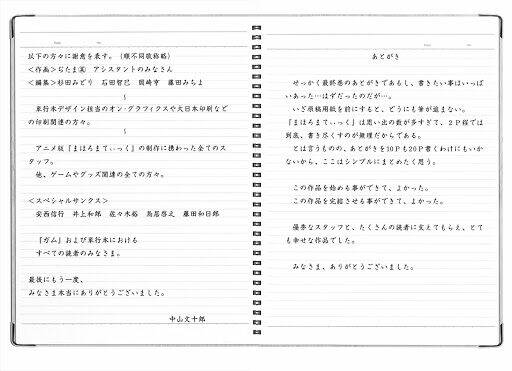 あとがき
せっかく最終巻のあとがきであるし、書きたい事はいっぱ
いあった…はずだったのだが…。
いざ原稿用紙を前にすると、どうにも筆が進まない。
『まほろまてぃっく』は思い出の数が多すぎて、2P程では
到底、書き尽くすのが無理だからである。
とは言うものの、あとがきを10Pも20P書くわけにもいか
ないから、ここはシンプルにまとめたく思う。
この作品を始める事ができて、よかった。
この作品を完結させる事ができて、よかった。
優秀なスタッフと、たくさんの読者に支えてもらえ、とて
も幸せな作品でした。
みなさま、ありがとうございました。
以下の方々に謝意を表す。(順不同敬称略)
<作画>ぢたま㋛ アシスタントのみなさん
<編集>杉田みどり 石田智巳 岡崎亨 藤田みちよ
~
単行本デザイン担当のオン・グラフィクスや大日本印刷など
の印刷関連の方々。
~
アニメ版『まほろまてぃっく』の制作に携わった全てのス
タッフ。
他、ゲームやグッズ関連の全ての方々。
<スペシャルサンクス>
安西信行 井上和郎 佐々木裕 鳥居啓之 藤田和日郎
『ガム』および単行本における
すべての読者のみなさま。
最後にもう一度、
みなさま本当にありがとうございました。
中山文十郎